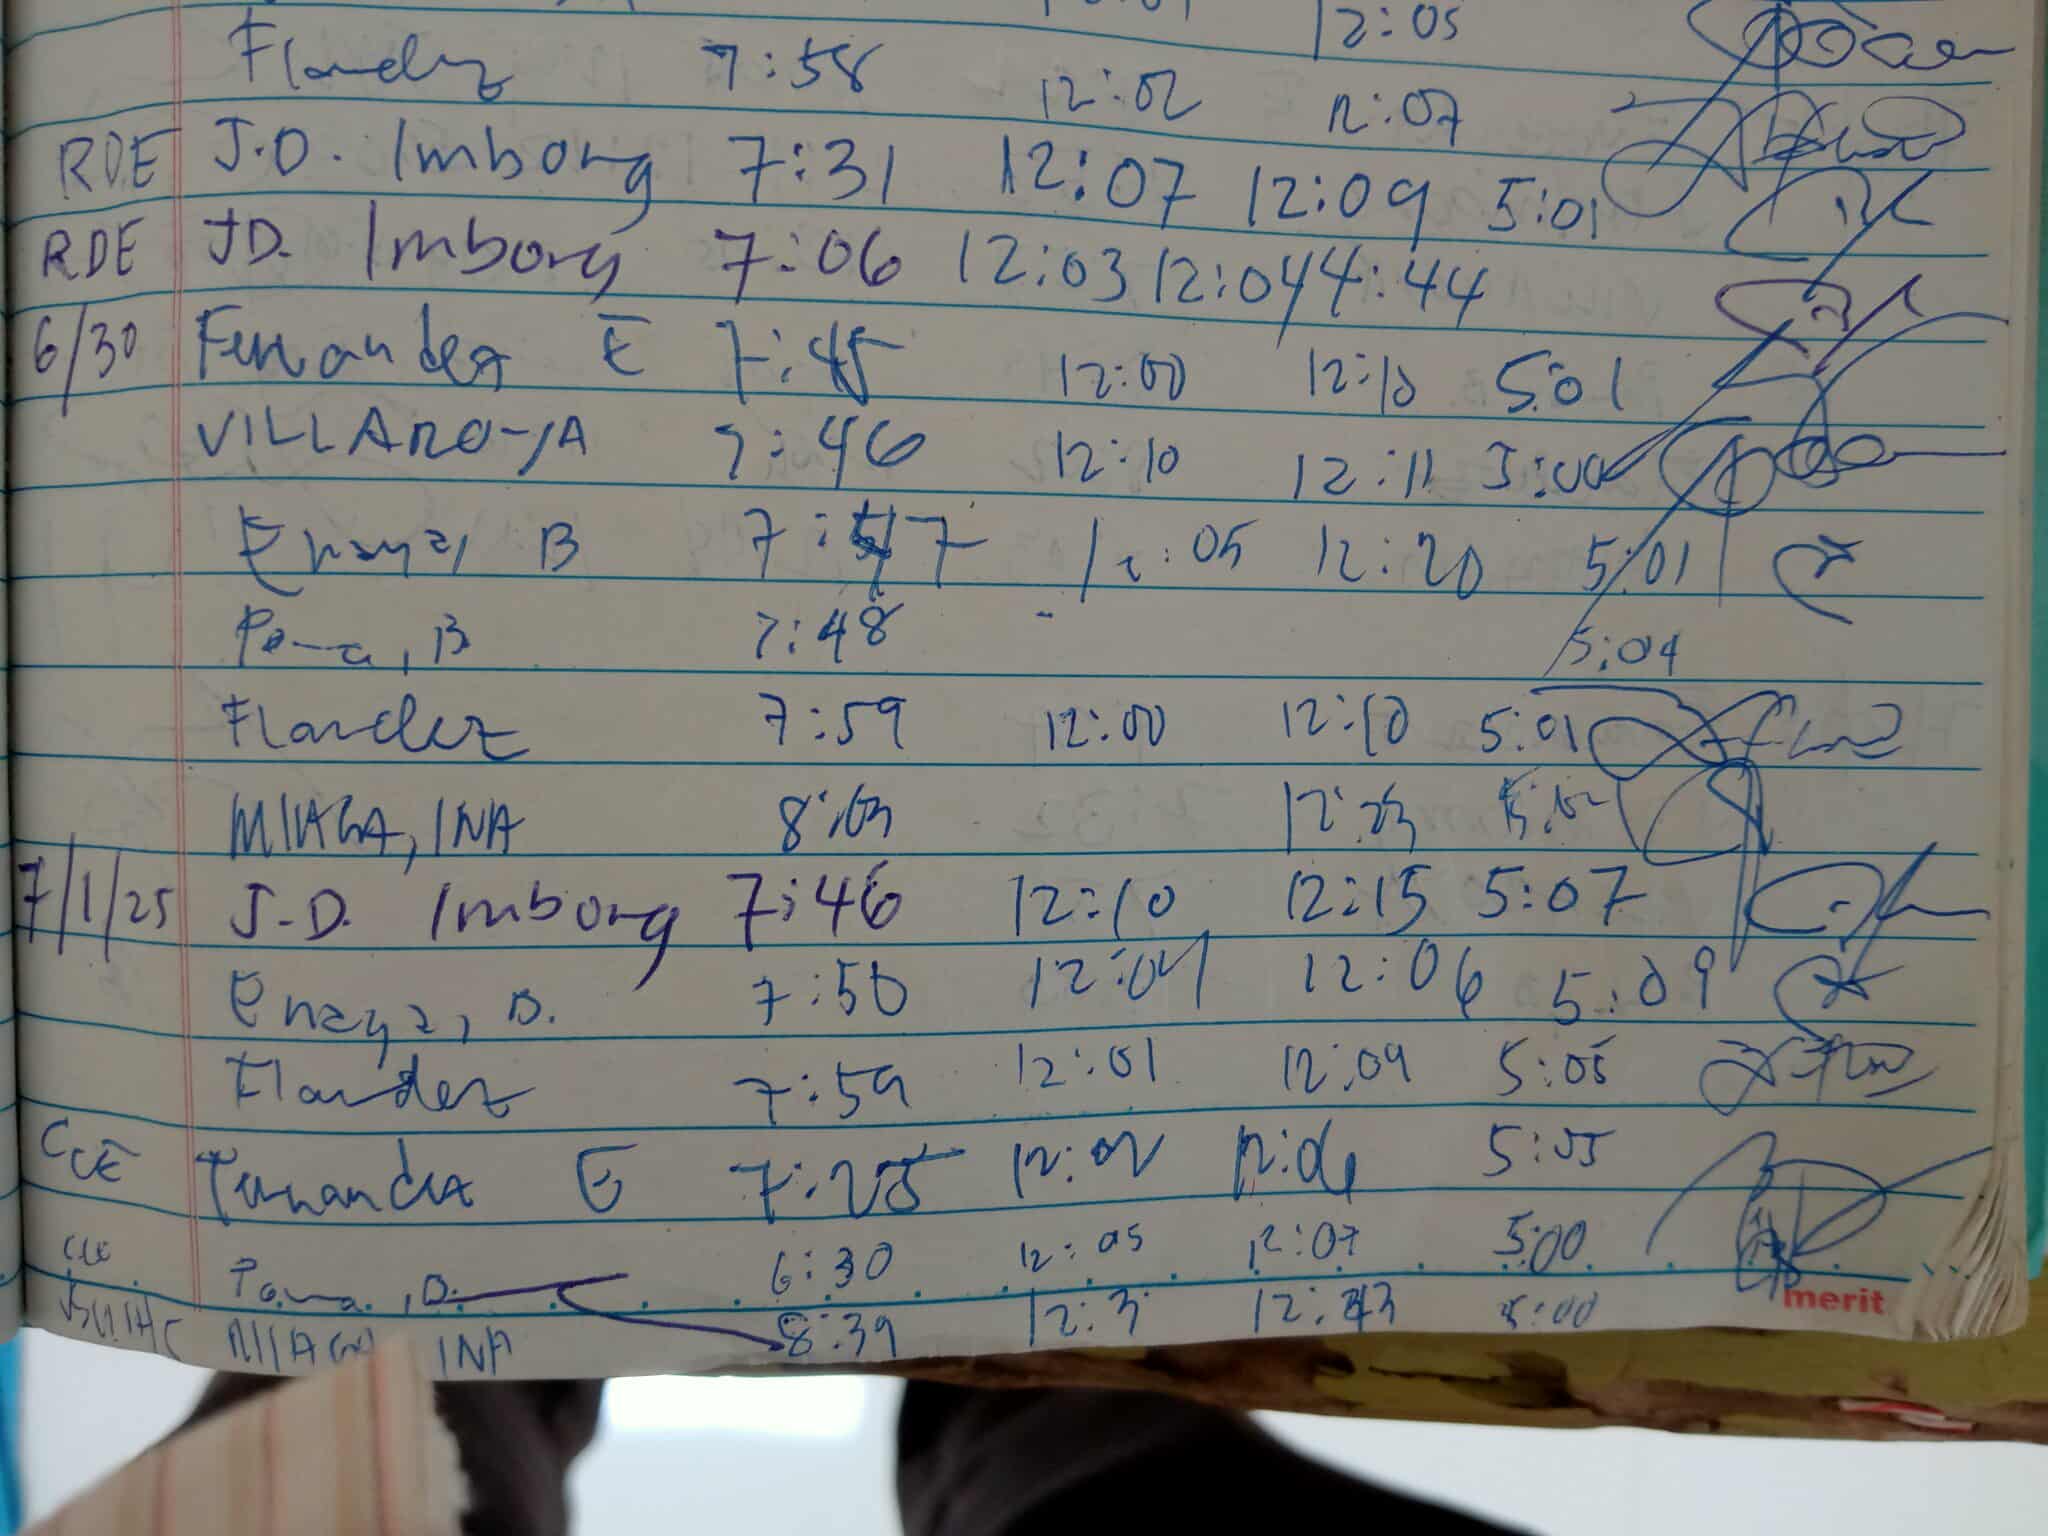 12:05
Flandez 7:58 12:02 12:07
RDE J.D. Imbong 7:31 12:07 12:09 5:01
RDE JD. Imbong 7:06 12:03 12:04 4:44
6/30 Fernandez E 7:45 12:00 12:10 5:01
VILLAROYA 7:46 12:10 12:11 5:00
Enaya, B 7:47 12:05 12:20 5:01
B 7:48 5:04
Flandez 7:59 12:00 12:10 5:01
MIAGA, INA 8:03 12:23
7/1/25 J.D. Imbong 7:46 12:10 12:15 5:07
Enaya, B. 7:50 12:04 12:06 5:09
Flandez 7:59 12:01 12:09 5:05
CCE Fernandez E 7:25 12:02 12:06 5:05
CCE 6:30 12:05 12:07 5:00
MIAGA INA 8:39 12:3 12:43 5:00
merit